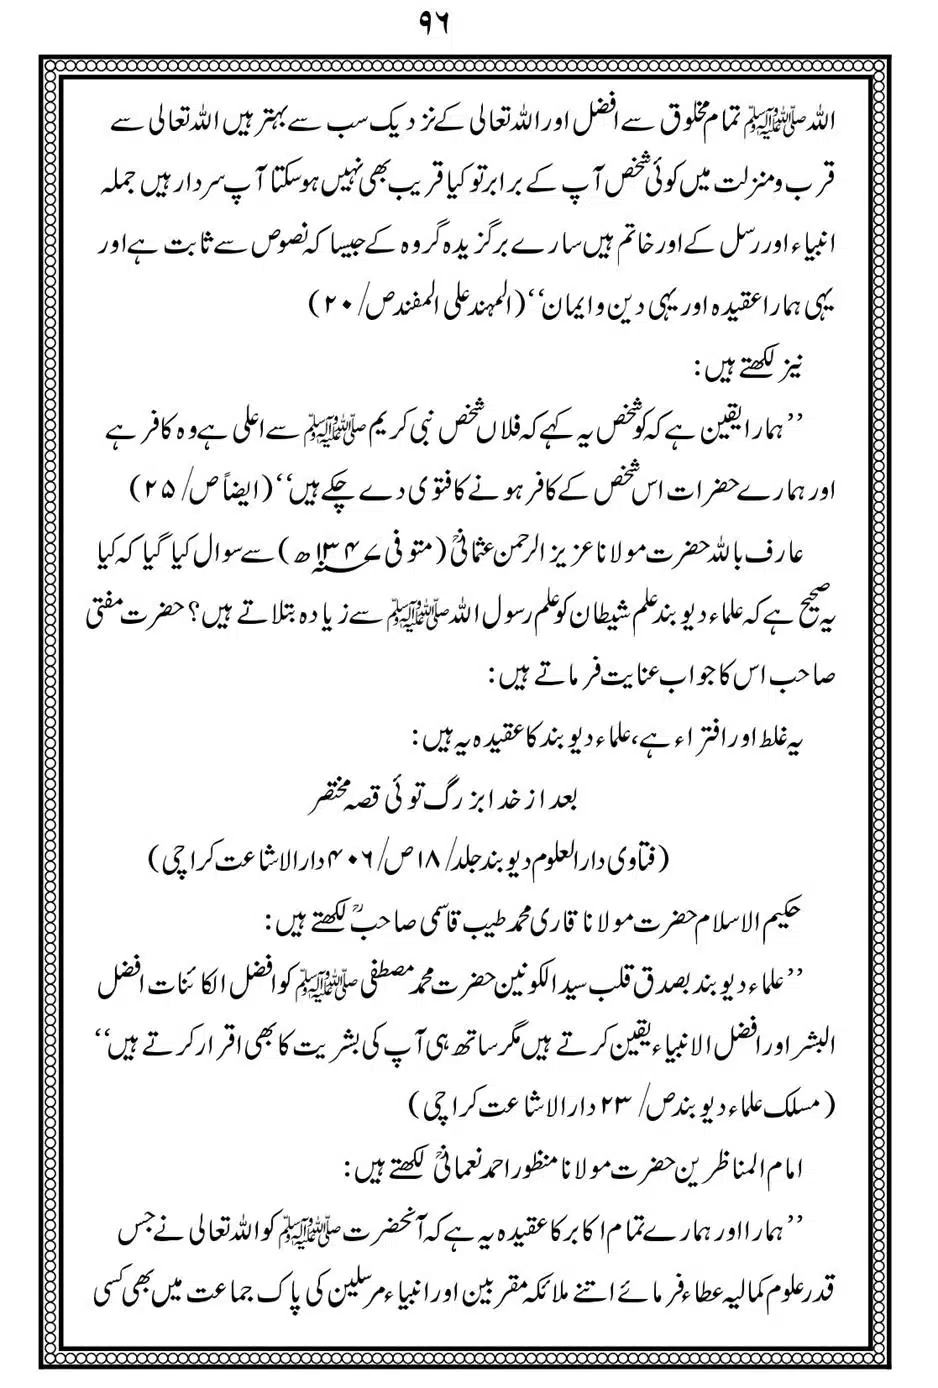 ۹۶
اللہ ﷺ تمام مخلوق سے افضل اور اللہ تعالی کے نزدیک سب سے بہتر ہیں اللہ تعالی سے
قرب و منزلت میں کوئی شخص آپ کے برابر تو کیا قریب بھی نہیں ہو سکتا آپ سردار ہیں جملہ
انبیاء اور رسل کے اور خاتم ہیں سارے برگزیدہ گروہ کے جیسا کہ نصوص سے ثابت ہے اور
یہی ہمارا عقیدہ اور یہی دین و ایمان‘‘ (المہند علی المفند ص/ ۲۰)
نیز لکھتے ہیں:
’’ہمارا یقین ہے کہ کو شخص یہ کہے کہ فلاں شخص نبی کریم ﷺ سے اعلی ہے وہ کافر ہے
اور ہمارے حضرات اس شخص کے کافر ہونے کا فتوی دے چکے ہیں‘‘ (ایضاً ص/ ۲۵)
عارف باللہ حضرت مولانا عزیز الرحمن عثمانیؒ (متوفی ۱۳۴۷ھ) سے سوال کیا گیا کہ کیا
یہ صحیح ہے کہ علماء دیوبند علم شیطان کو علم رسول اللہ ﷺ سے زیادہ بتلاتے ہیں؟ حضرت مفتی
صاحب اس کا جواب عنایت فرماتے ہیں:
یہ غلط اور افتراء ہے، علماء دیوبند کا عقیدہ یہ ہیں:
بعد از خدا بزرگ توئی قصہ مختصر
(فتاوی دار العلوم دیوبند جلد/ ۱۸ ص/ ۴۰۶ دار الاشاعت کراچی)
حکیم الاسلام حضرت مولانا قاری محمد طیب قاسمی صاحبؒ لکھتے ہیں:
’’علماء دیوبند بصدق قلب سید الکونین حضرت محمد مصطفی ﷺ کو افضل الکائنات افضل
البشر اور افضل الانبیاء یقین کرتے ہیں مگر ساتھ ہی آپ کی بشریت کا بھی اقرار کرتے ہیں‘‘
(مسلک علماء دیوبند ص/ ۲۳ دار الاشاعت کراچی)
امام المناظرین حضرت مولانا منظور احمد نعمانیؒ لکھتے ہیں:
’’ہمارا اور ہمارے تمام اکابر کا عقیدہ یہ ہے کہ آنحضرت ﷺ کو اللہ تعالی نے جس
قدر علوم کمالیہ عطاء فرمائے اتنے ملائکہ مقربین اور انبیاء مرسلین کی پاک جماعت میں بھی کسی